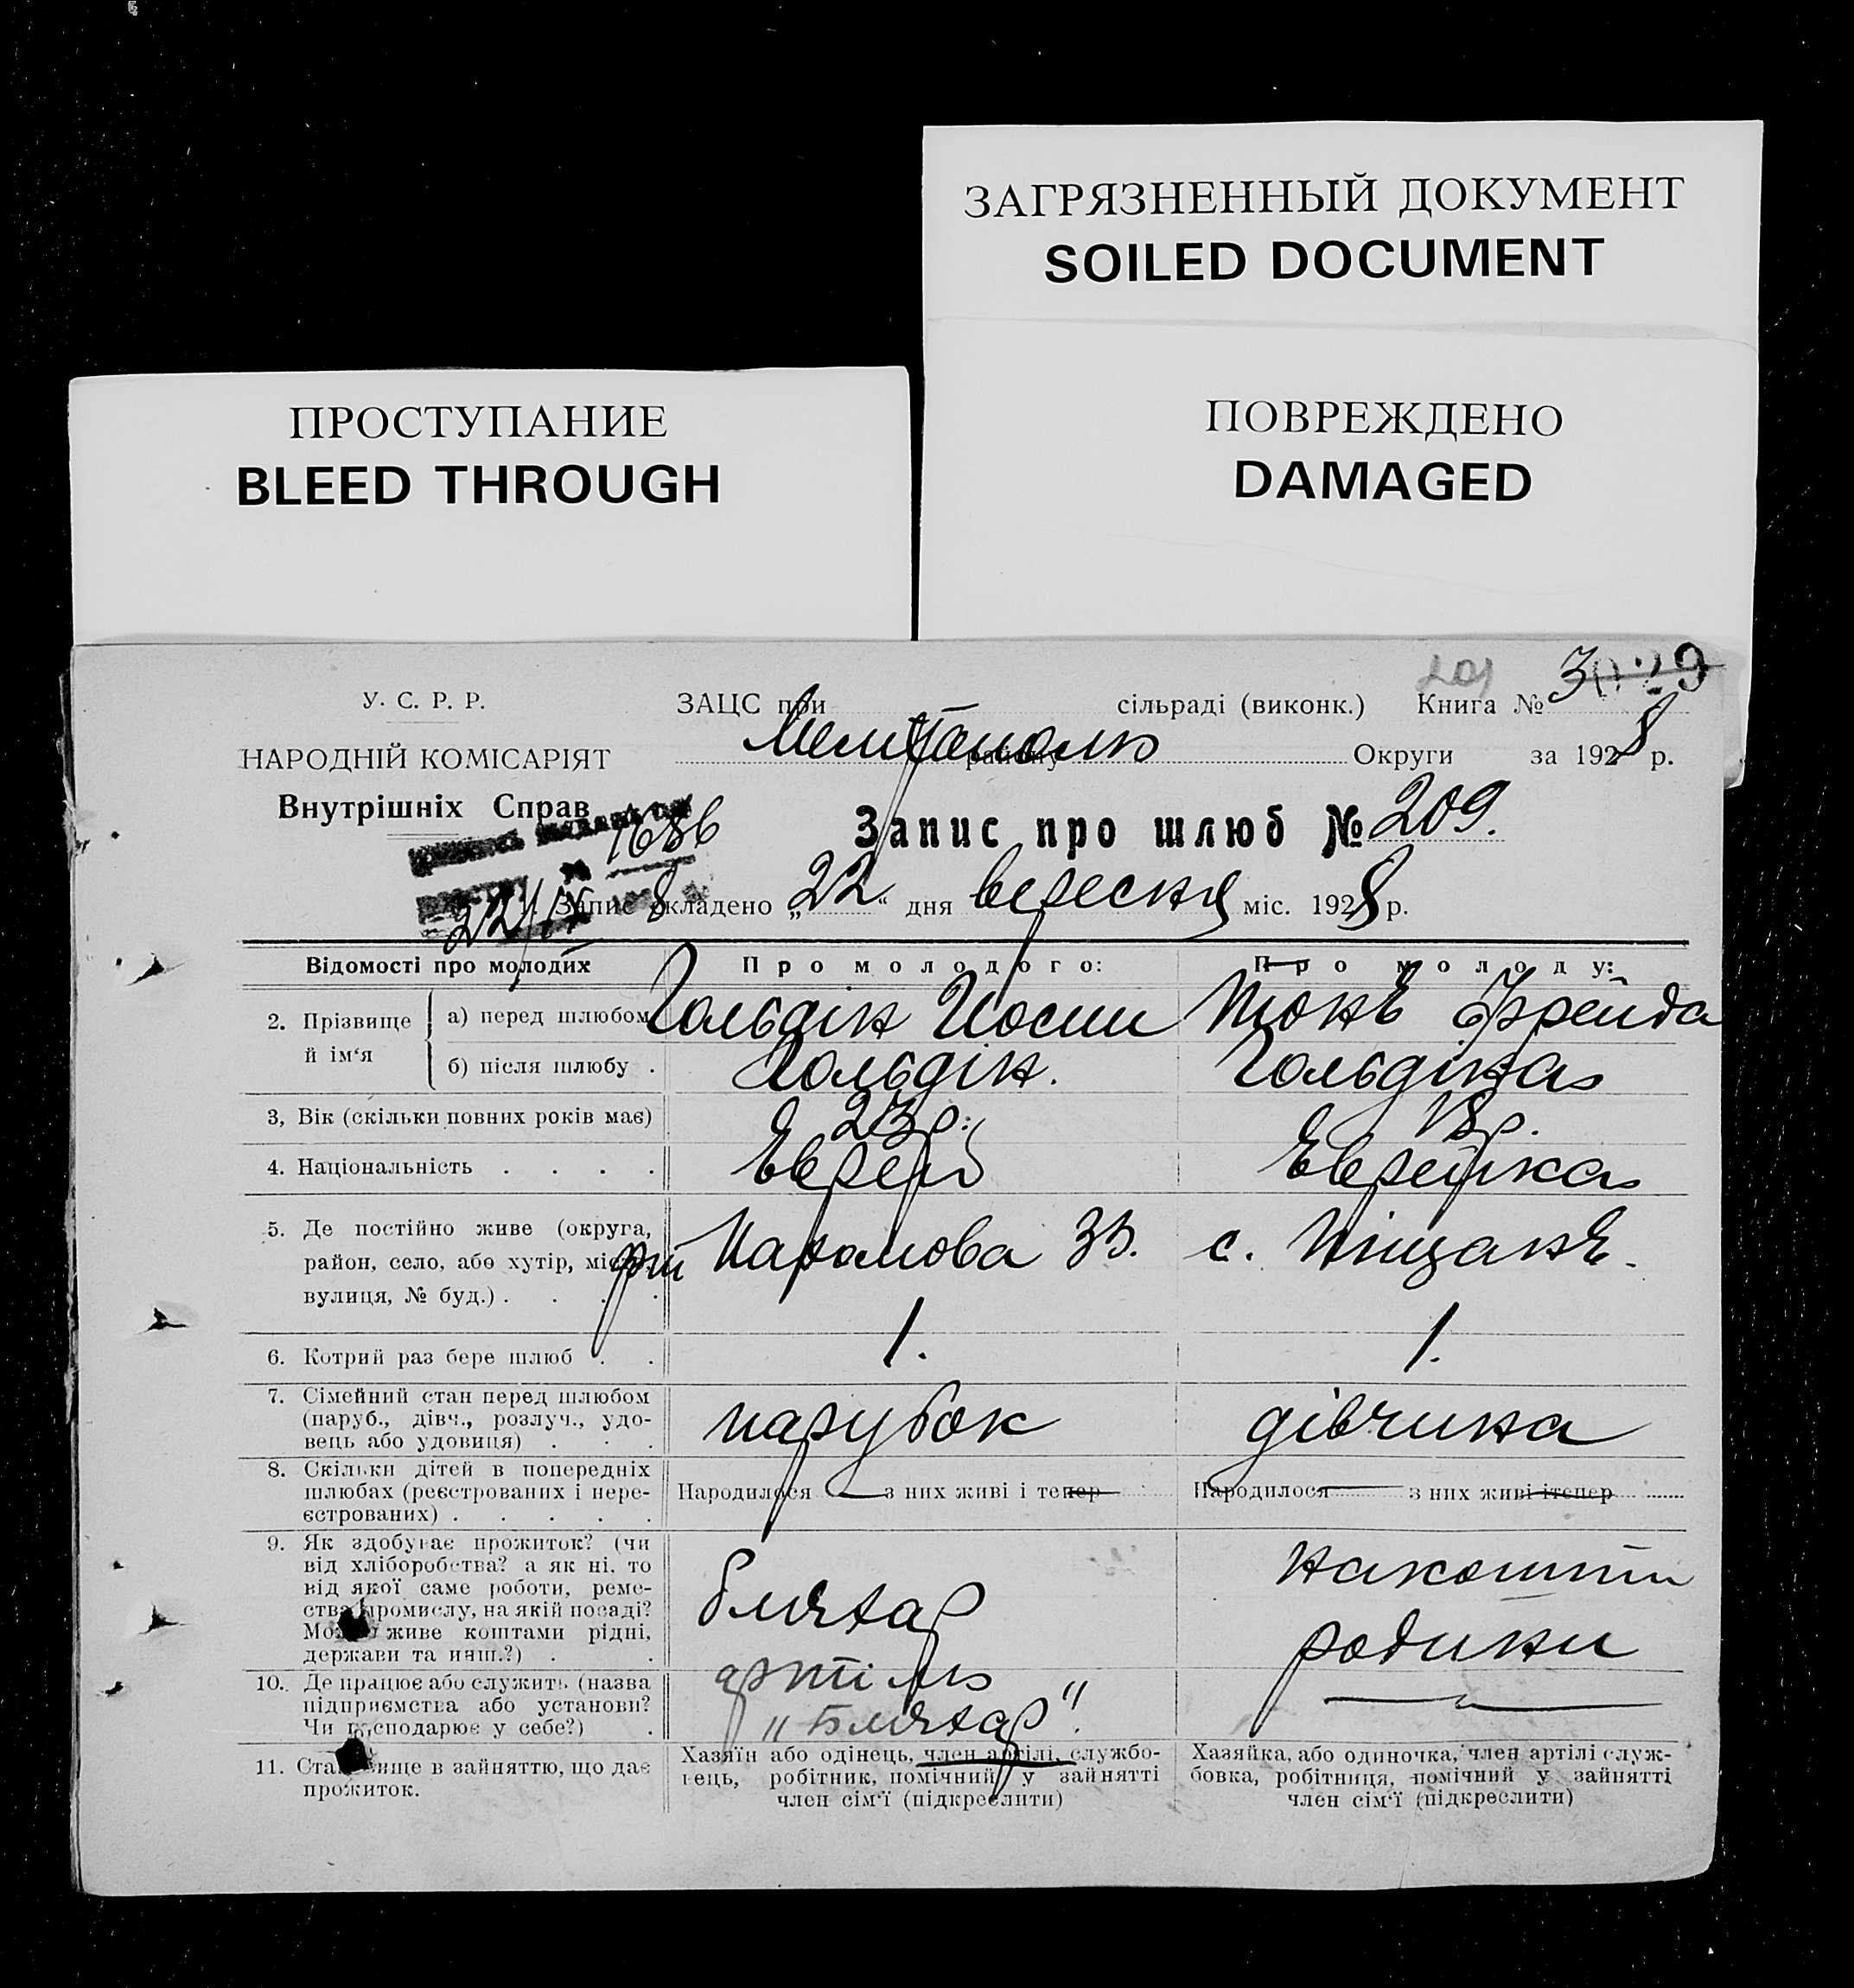 ЗАГРЯЗНЕННЫЙ ДОКУМЕНТ
SOILED DOCUMENT
ПОВРЕЖДЕНО
DAMAGED
ПРОСТУПАНИЕ
BLEED THROUGH
У. С. Р. Р.
НАРОДНІЙ КОМІСАРІЯТ
Внутрішніх Справ
ЗАЦС при сільраді (виконк.) Книга №
Мелітополь району Округи за 1928 р.
1686
Запис про шлюб № 209.
22/IX 8
Запис складено „22“ дня вересня міс. 1928 р.
Відомості про молодих Про молодого: Про молоду:
2. Прізвище й ім‘я
а) перед шлюбом Гольдін Йосип Фрейда
б) після шлюбу . Гольдін. Гольдіна
3, Вік (скільки повних років має) 23 р. 18 р.
4. Національність . . . . Еврей Еврейка
5. Де постійно живе (округа,
район, село, або хутір, місто,
вулиця, № буд.) . . . .
с.
6. Котрий раз бере шлюб . . 1. 1.
7. Сімейний стан перед шлюбом
(паруб., дівч., розлуч., удо-
вець або удовиця) . . .
парубок дівчина
8. Скільки дітей в попередніх
шлюбах (реєстрованих і нере-
єстрованих) . . . . .
Народилося — з них живі і тепер Народилося — з них живі і тепер
9. Як здобуває прожиток? (чи
від хліборобства? а як ні, то
від якої саме роботи, реме-
ства промислу, на якій посаді?
Може живе коштами рідні,
держави та инш.?) . .
бляхар
на кошти
родини
10. Де працює або служить (назва
підприємства або установи?
Чи господарює у себе?) .
артіль
„Бляхар".
11. Становище в зайняттю, що дає
прожиток.
Хазяїн або одінець, член артілі, службо-
вець, робітник, помічний у зайнятті
член сім‘ї (підкреслити)
Хазяйка, або одиночка, член артілі служ-
бовка, робітниця, помічний у зайнятті
член сім‘ї (підкреслити)